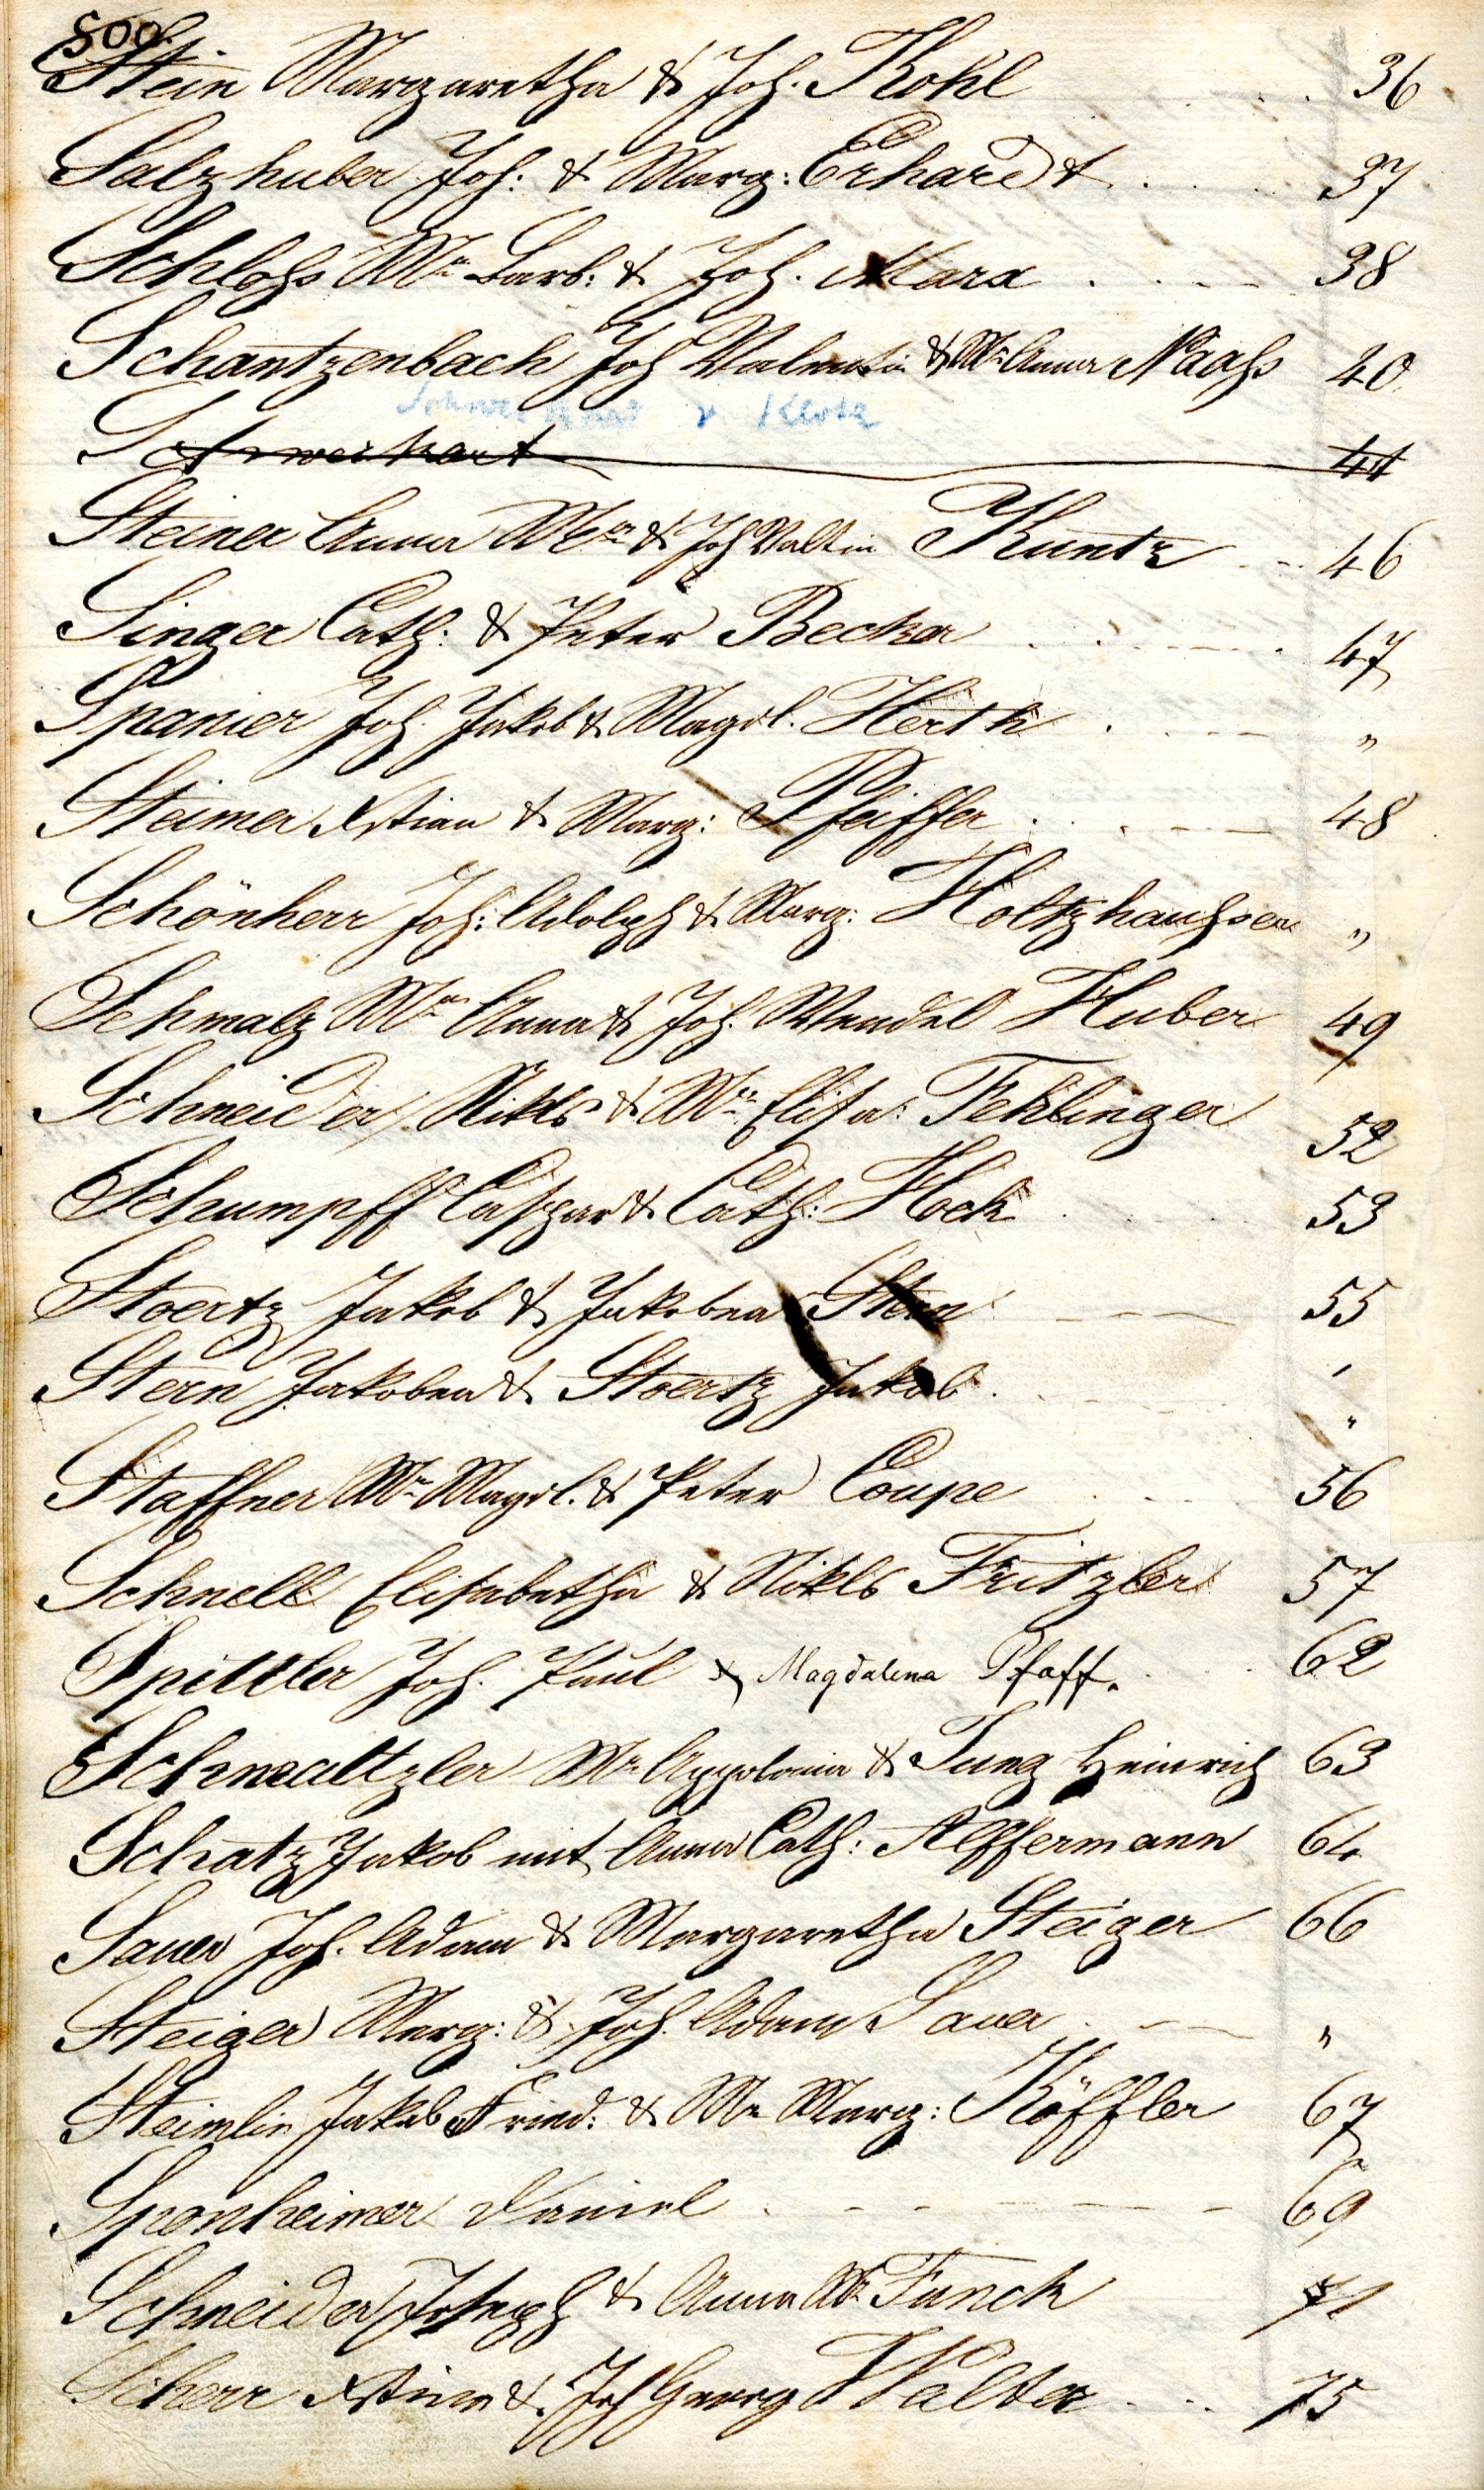 500.
Stein Margaretha & Joh. Kohl . . . 36
Salzhuber Joh: & Marg: Erhardt . . . 37
Schloss Mr Barb: & Joh. Marx . . . 38
Schantzenbach Joh Valentin & Mr Anna Maass 40
& Klotz
Schweikart 41
Steiner Anna Mr & Joh Valtin Kuntz 46
Singer Cath: & Peter Becker . . . 47
Spanier Joh. Jakob & Magdl. Herth . . . "
Steimer Xstian & Marg: Pfeiffer . . . 48
Schönherr Joh: Adolph & Marg: Holtzhaussen "
Schmalz Mr Anna & Joh. Wendel Huber 49
Schneider Nikls & Mr Elisa: Fehlinger 52
Schumpff Caspar & Cath: Hock 53
Stoertz Jakob & Jakobea Stern 55
Stern Jakobea & Stoertz Jakob . . . "
Staffner Mr Magdl. & Peter Coupe 56
Schnell Elisabetha & Nikls Fritzler 57
Spittler Joh. Paul & Magdalena Pfaff. 62
Schmaltzler Mr Appolonia & Jung Heinrich 63
Schatz Jakob mit Anna Cath: Alffermann 64
Sauer Joh. Adam & Margaretha Steiger 66
Steiger Marg: & Joh. Adam Sauer . . . "
Steimlin Jakob Fried: & Mr Marg: Köffler 67
Sponheimer Daniel . . . 69
Schneider Joseph & Anna Mr Funck 71
Scherr Xstina & Joh Georg Walter . . . 75